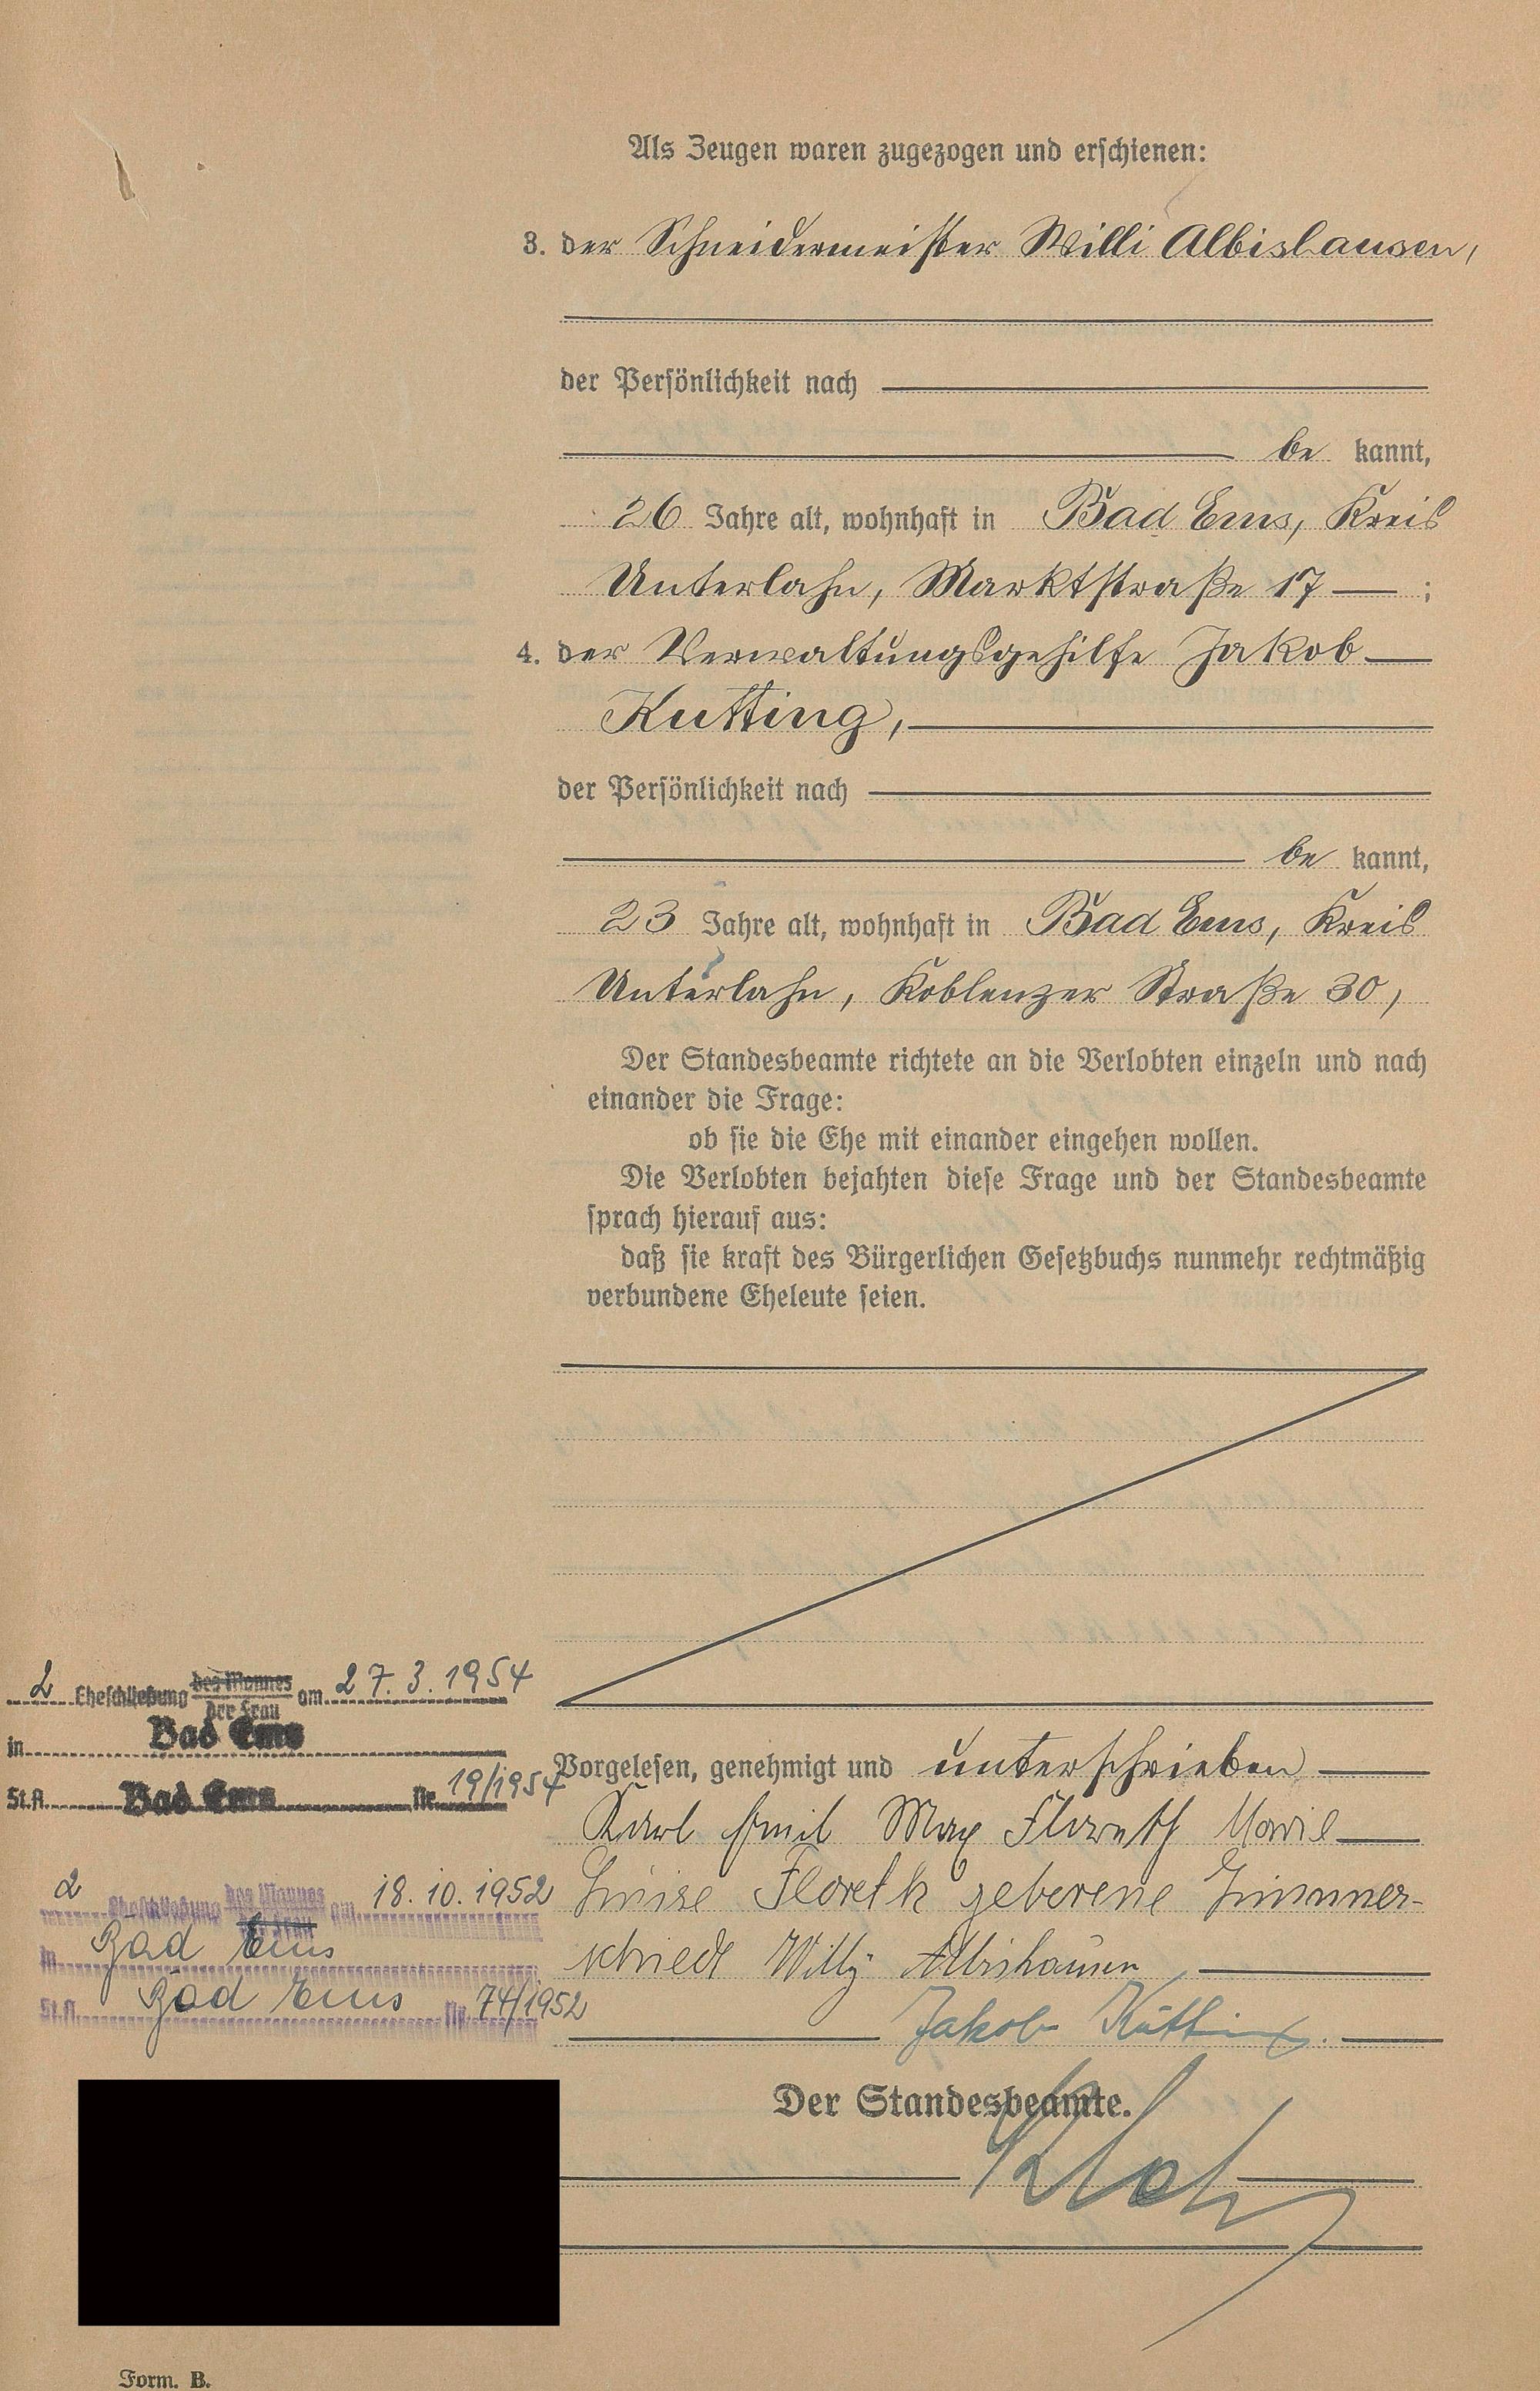 Als Zeugen waren zugezogen und erschienen:
3. der Schneidermeister Willi Albishausen,
der Persönlichkeit nach
be kannt,
26 Jahre alt, wohnhaft in Bad Ems, Kreis
Unterlahn, Marktstraße 17 — ;
4. der Verwaltungsgehilfe Jakob —
Kutting, —
der Persönlichkeit nach
be kannt,
23 Jahre alt, wohnhaft in Bad Ems, Kreis
Unterlahn, Koblenzer Straße 30,
Der Standesbeamte richtete an die Verlobten einzeln und nach
einander die Frage:
ob sie die Ehe mit einander eingehen wollen.
Die Verlobten bejahten diese Frage und der Standesbeamte
sprach hierauf aus:
daß sie kraft des Bürgerlichen Gesetzbuchs nunmehr rechtmäßig
verbundene Eheleute seien.
Vorgelesen, genehmigt und unterschrieben —
Karl Emil Max Floreth Marie —
Luise Floreth geborene Zimmer-
schied Willy Albishausen —
Jakob Kutting. —
Der Standesbeamte.
2 Eheschließung des Mannes der Frau am 27. 3. 1954
in Bad Ems
St.A. Bad Ems Nr. 19/1954
2 Eheschließung des Mannes der Frau am 18. 10. 1952
in Bad Ems
St.A. Bad Ems Nr. 74/1952
Form. B.